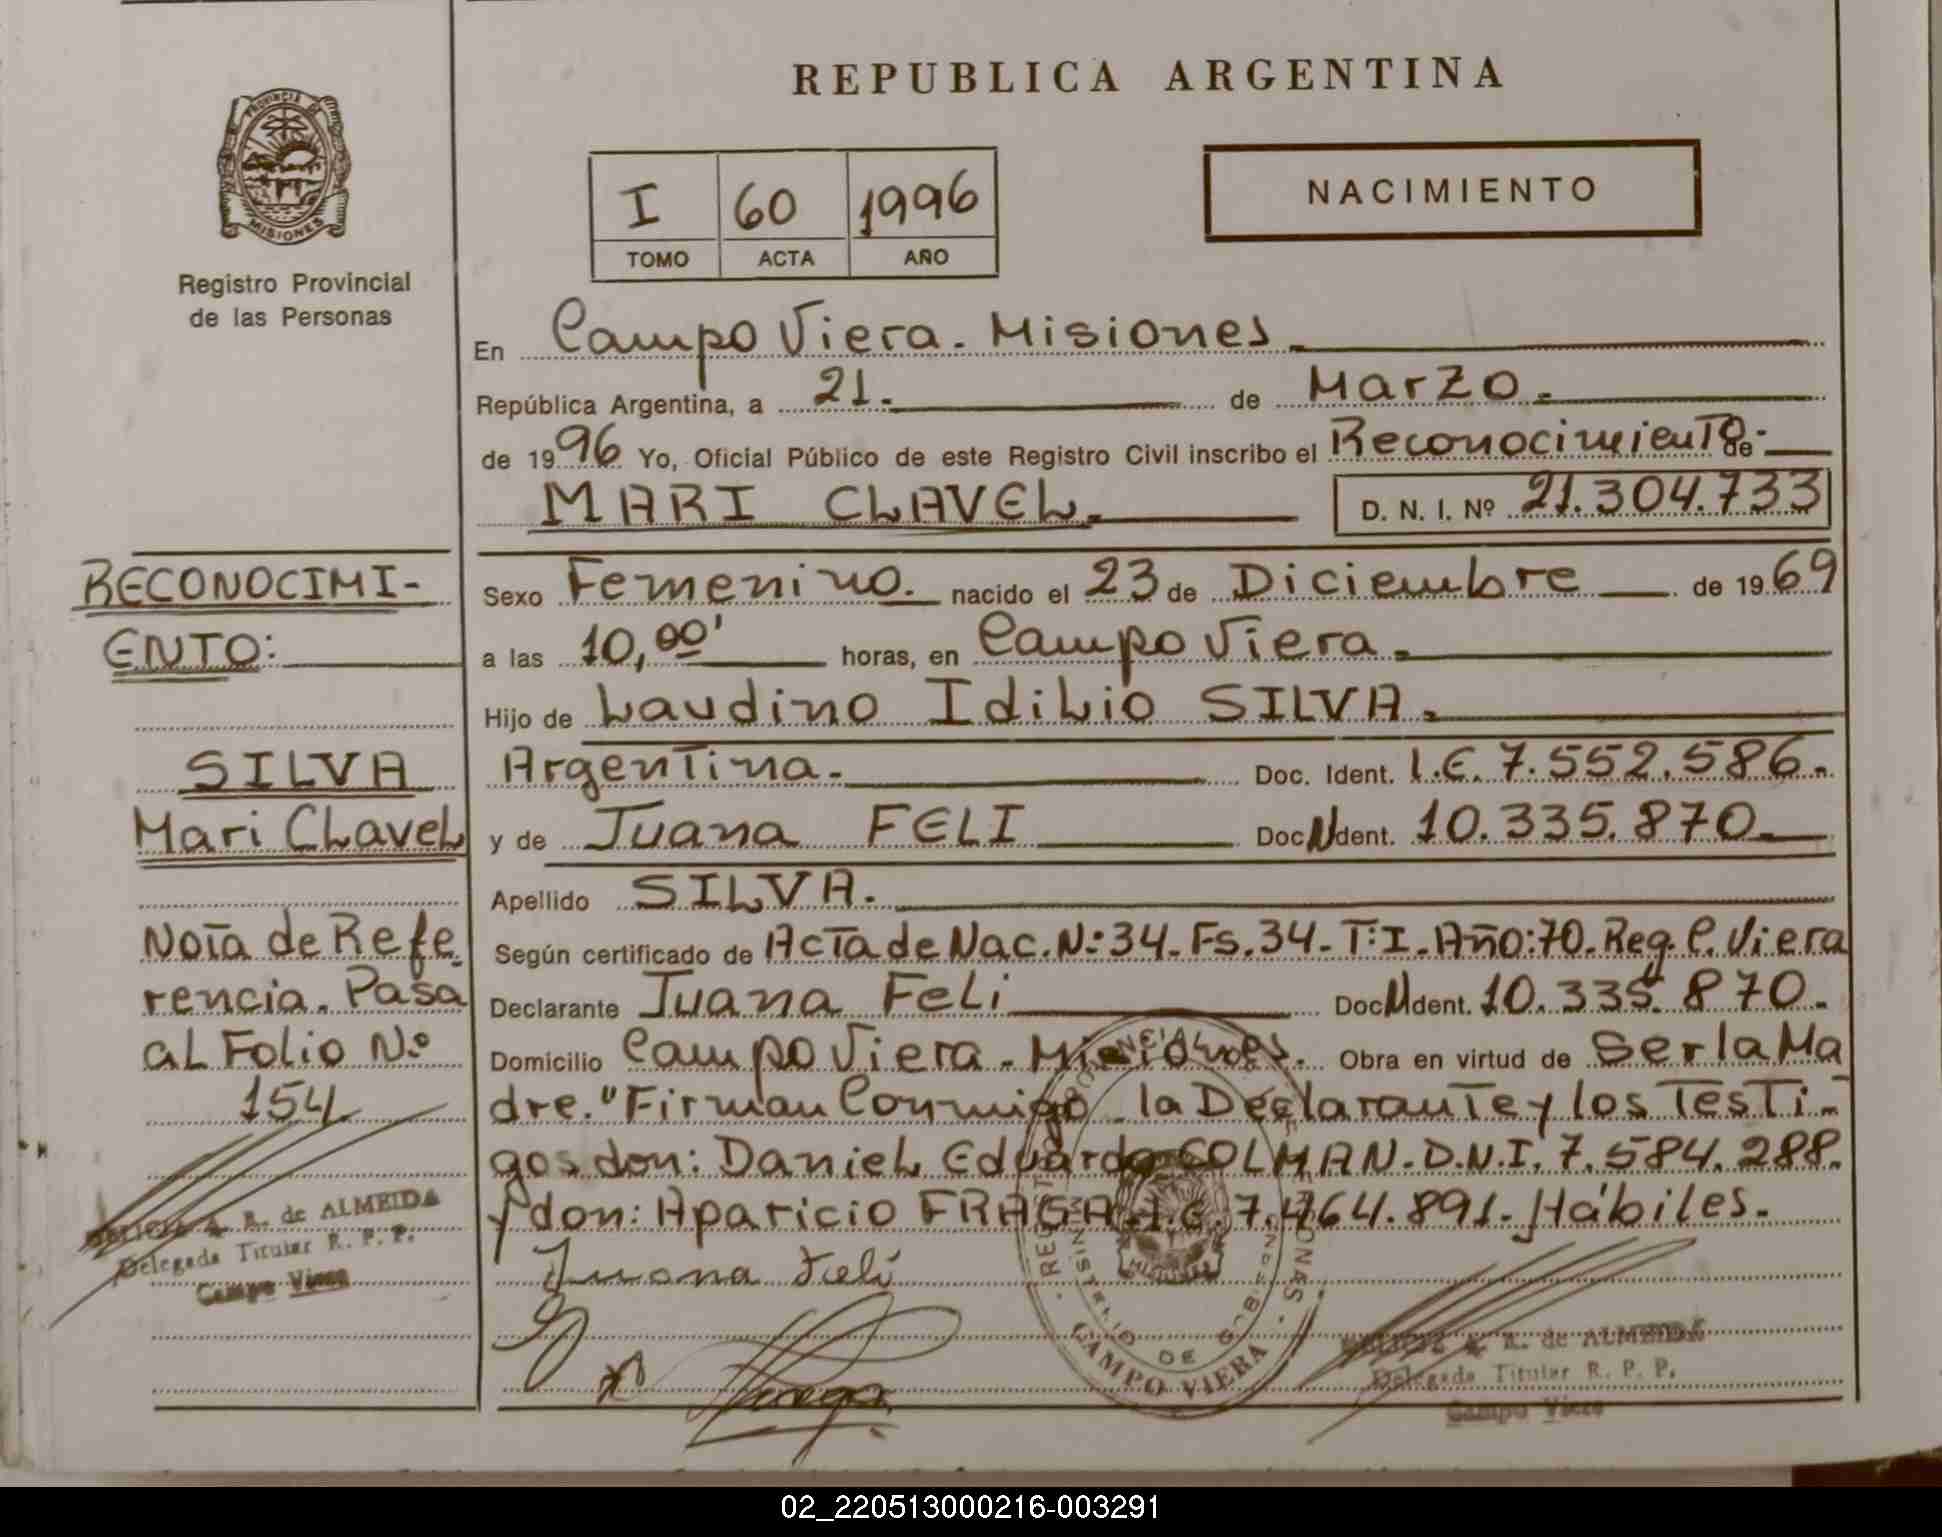 REPUBLICA ARGENTINA
PROVINCIA DE
MISIONES
Registro Provincial
de las Personas
I 60 1996
TOMO ACTA AÑO
NACIMIENTO
En Campo Viera. Misiones.
República Argentina, a 21. de Marzo.
de 1996 Yo, Oficial Público de este Registro Civil inscribo el Reconocimiento de
MARI CLAVEL. D. N. I. Nº 21.304.733
Sexo Femenino. nacido el 23 de Diciembre de 1969
a las 10,00' horas, en Campo Viera.
Hijo de Laudino Idilio SILVA.
Argentina. Doc. Ident. L.E. 7.552.586.
y de Juana FELI Doc. Ident. 10.335.870.
Apellido SILVA.
Según certificado de Acta de Nac. Nº: 34. Fs. 34. T: I. Año: 70. Reg. C. Viera
Declarante Juana Feli Doc. Ident. 10.335.870.
Domicilio Campo Viera. Misiones. Obra en virtud de Ser la Ma
dre. "Firman Conmigo la Declarante y los Testi-
gos don: Daniel Eduardo COLMAN. D.N.I. 7.584.288.
y don: Aparicio FRAGA. I.E. 7.464.891. Hábiles.
Juana Feli
RECONOCIMI-
ENTO:
SILVA
Mari Clavel
Nota de Refe
rencia. Pasa
al Folio Nº
154
A. R. de ALMEIDA
Delegada Titular R. P. P.
Campo Viera
MINISTERIO DE GOBIERNO
CAMPO VIERA
A. R. de ALMEIDA
Delegada Titular R. P. P.
Campo Viera
02_220513000216-003291